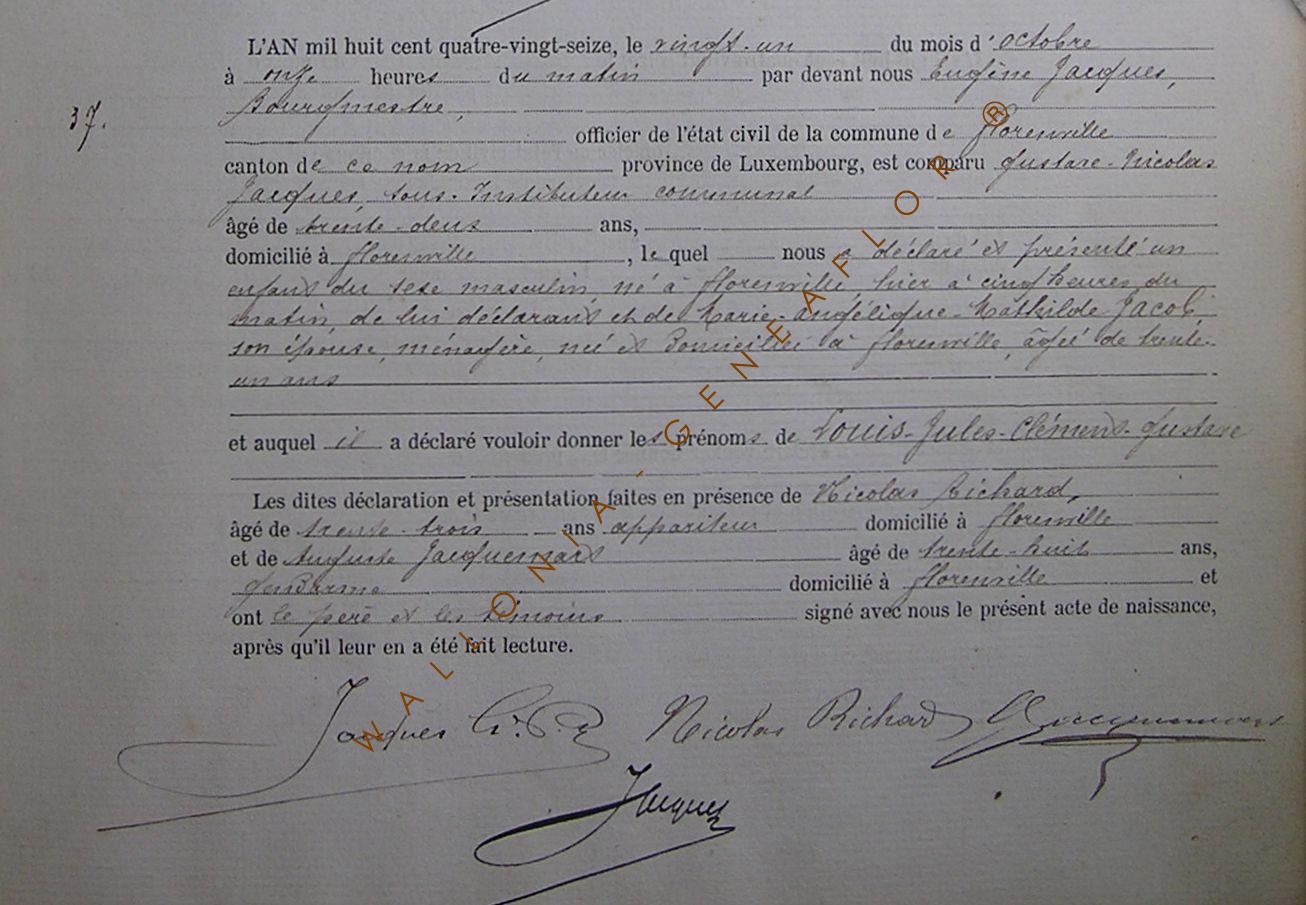 L'AN mil huit cent quatre-vingt-seize, le vingt-un du mois d'octobre
à onze heures du matin par devant nous Eugène Jacques,
Bourgmestre,
37.
officier de l'état civil de la commune de Florenville
canton de ce nom province de Luxembourg, est comparu Gustave-Nicolas
Jacques, sous-Instituteur communal
âgé de trente-deux ans,
domicilié à Florenville, le quel nous a déclaré et présenté un
enfant du sexe masculin, né à Florenville, hier à cinq heures du
matin, de lui déclarant et de Marie-Angélique-Mathilde Jacob
son épouse, ménagère, née et domiciliée à Florenville, âgée de trente-
un ans
et auquel il a déclaré vouloir donner les prénoms de Louis-Jules-Clément-Gustave
Les dites déclaration et présentation faites en présence de Nicolas Richard,
âgé de trente-trois ans appariteur domicilié à Florenville
et de Auguste Jacquemart âgé de trente-huit ans,
gendarme domicilié à Florenville et
ont le père et les témoins signé avec nous le présent acte de naissance,
après qu'il leur en a été fait lecture.
Jacques Nicolas Richard Jacquemart
Jacques
WALLONIA-GENEAFLOR ®